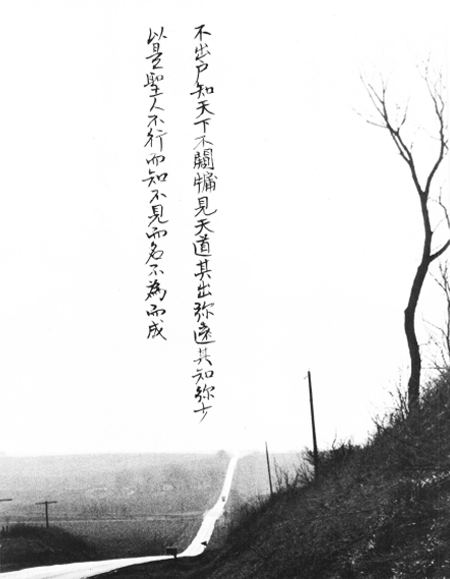 不出戶知天下不闚牖見天道其出弥遠其知弥少
以是聖人不行而知不見而名不為而成